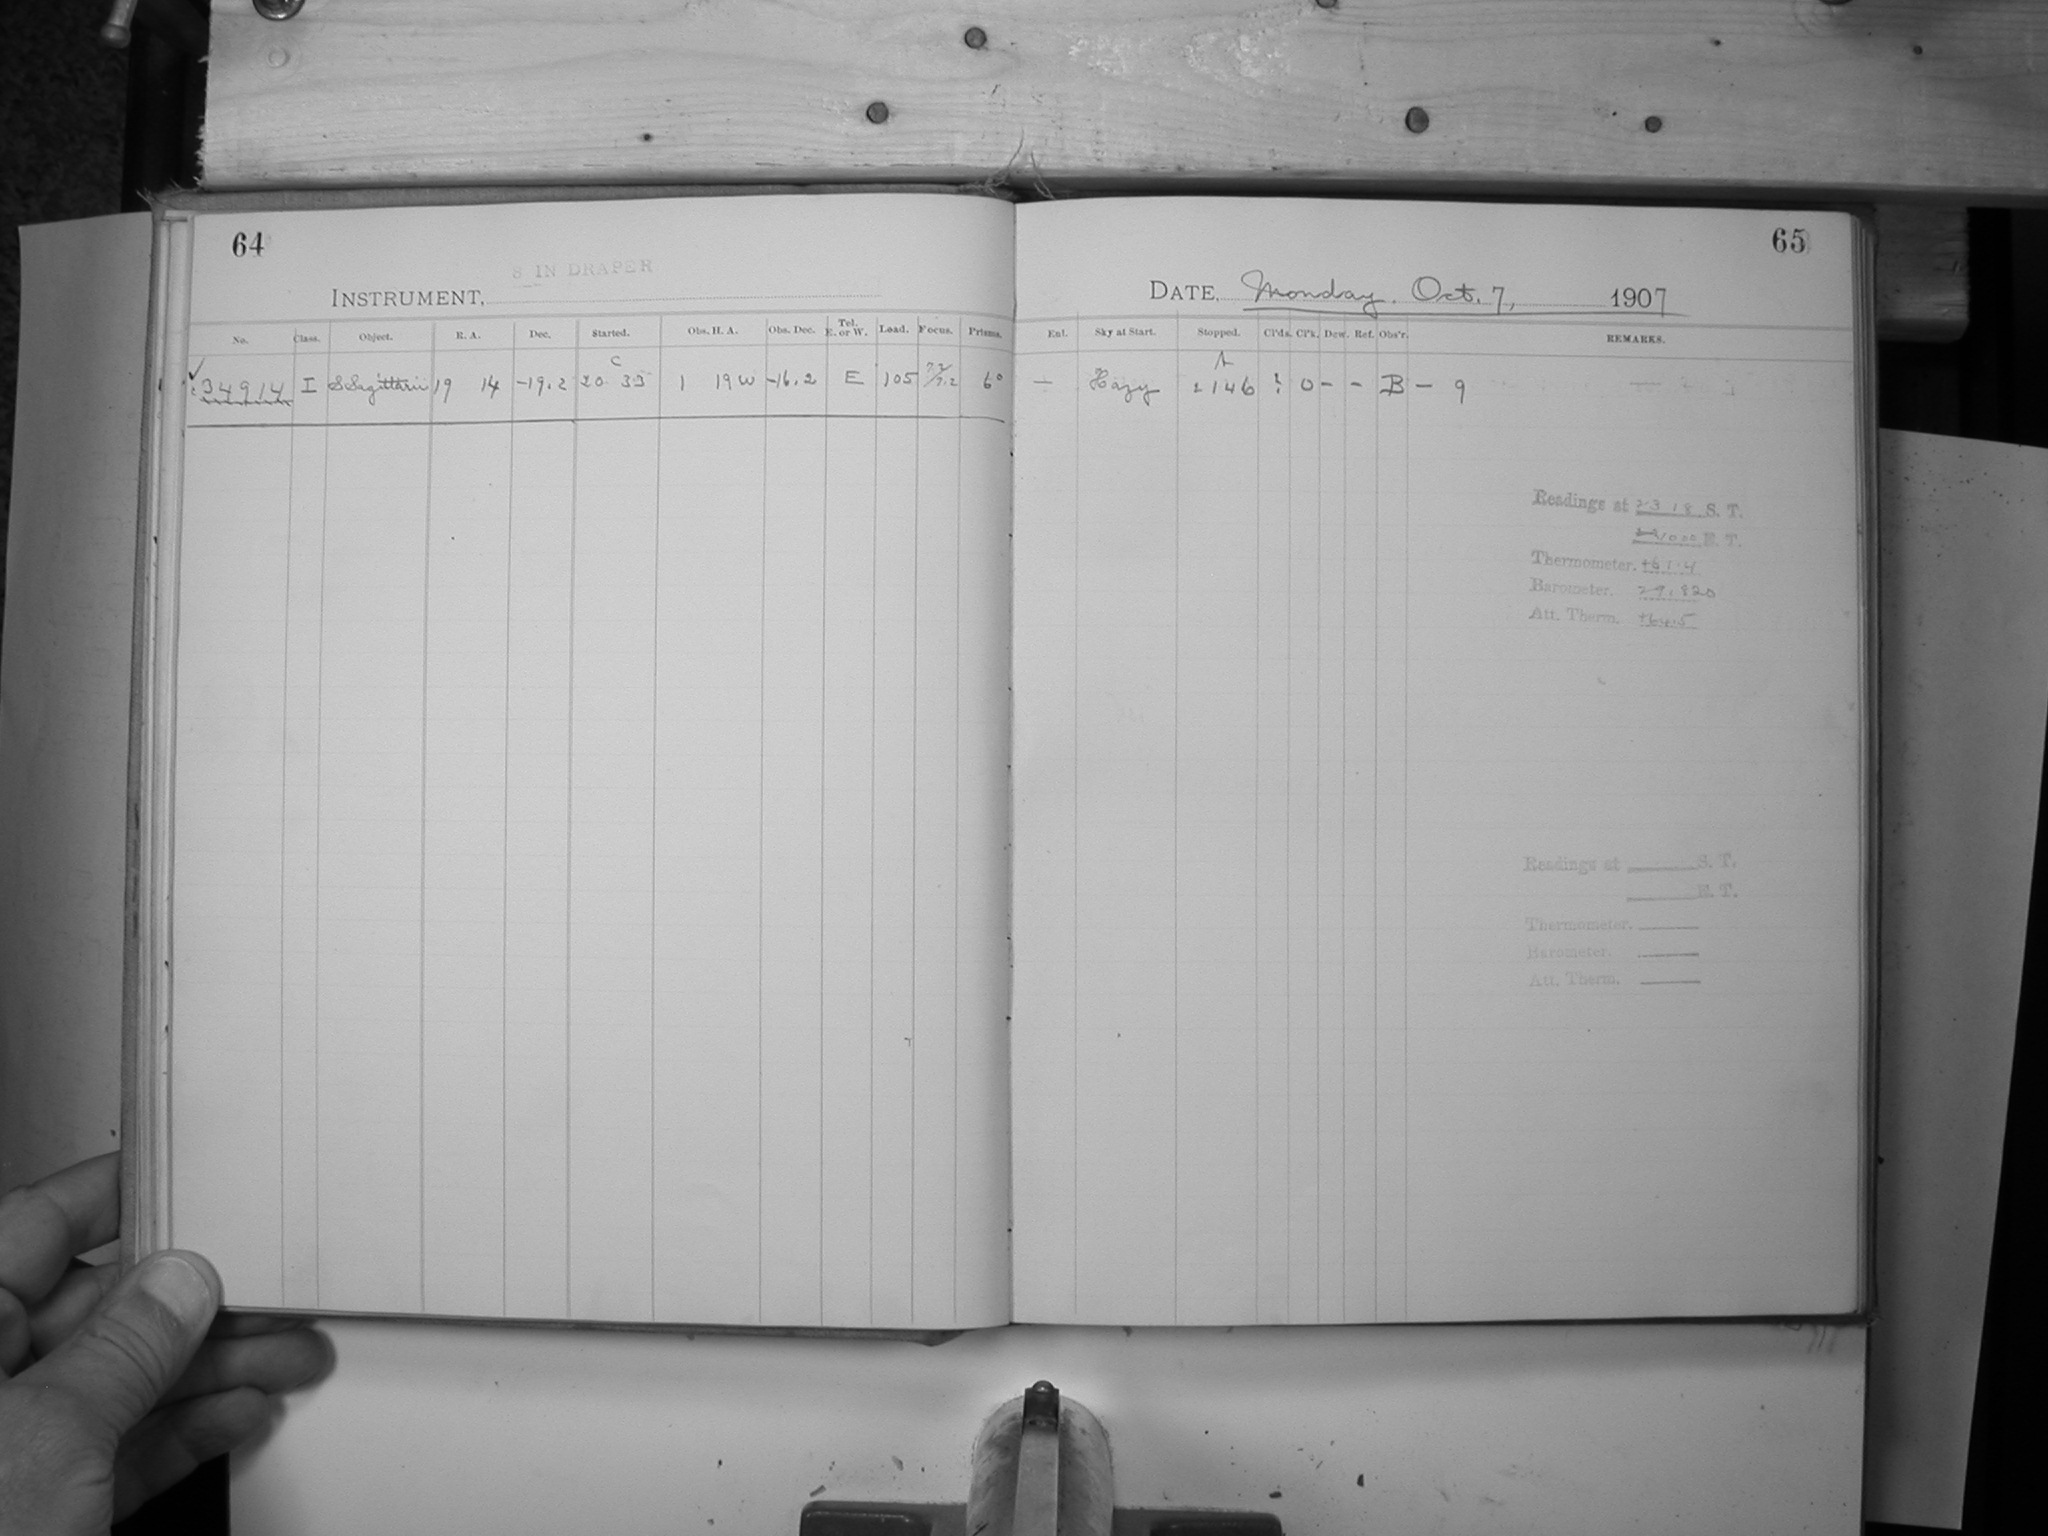 64
8 IN DRAPER
INSTRUMENT,
No. Class. Object. R. A. Dec. Started. Obs. H. A. Obs. Dec. Tel. E. or W. Load. Focus. Prisms.
C
34914 I S Sagittarii 19 14 -19.2 20 33 1 19 W -16.2 E 105 7.2/7.2 6°
65
DATE, Monday. Oct. 7, 1907
Ent. Sky at Start. Stopped. Cl'ds. Cl'k. Dew. Ref. Obs'r. REMARKS.
A
— Hazy 2146 0 - - B - 9
Readings at 23 18 S. T.
E. T.
Thermometer. +61.4
Barometer. 29.820
Att. Therm. +64.5
Readings at S. T.
E. T.
Thermometer.
Barometer.
Att. Therm.